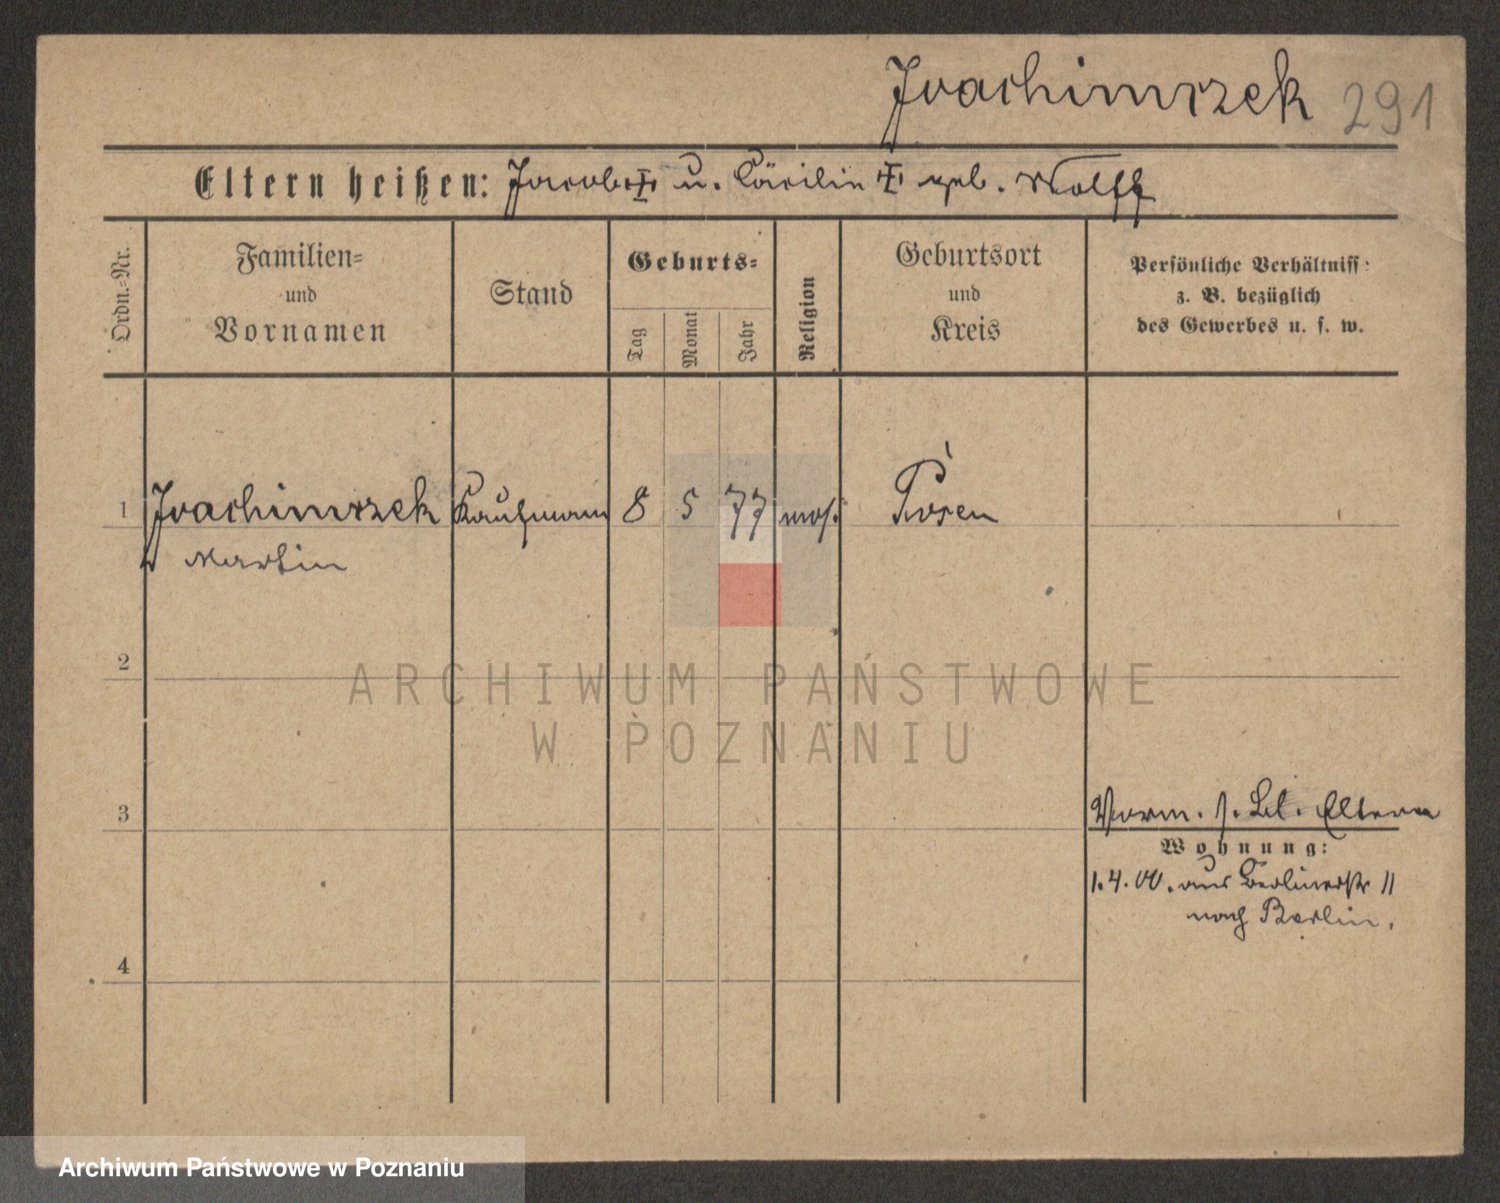 Joachimczek 291
Eltern heißen: Jacob ‡ u. Cäcilie ‡ geb. Wolff
Ordn.-Nr.
Familien-
und
Vornamen
Stand
Geburts-
Tag
Monat
Jahr
Religion
Geburtsort
und
Kreis
Persönliche Verhältniss:
z. B. bezüglich
des Gewerbes u. s. w.
1 Joachimczek Kaufmann 8 5 77 mos. Posen
Martin
2
3
4
Vorm. s. Bl. Eltern
Wohnung:
1.4.00. aus Berlinerstr 11
nach Berlin.
ARCHIWUM PAŃSTWOWE
W POZNANIU
Archiwum Państwowe w Poznaniu